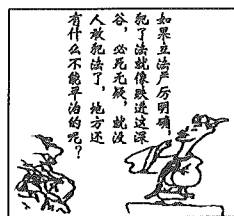 如果立法严厉明确，
犯了法就像跌进这深
谷，必死无疑，就没
人敢犯法了，地方还
有什么不能平治的呢？